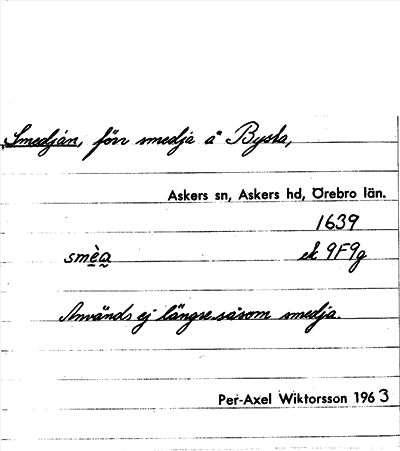 Smedjan, förr smedja å Bysta,
Askers sn, Askers hd, Örebro län.
1639
smèa ek 9F9g
Används ej längre såsom smedja.
Per-Axel Wiktorsson 1963